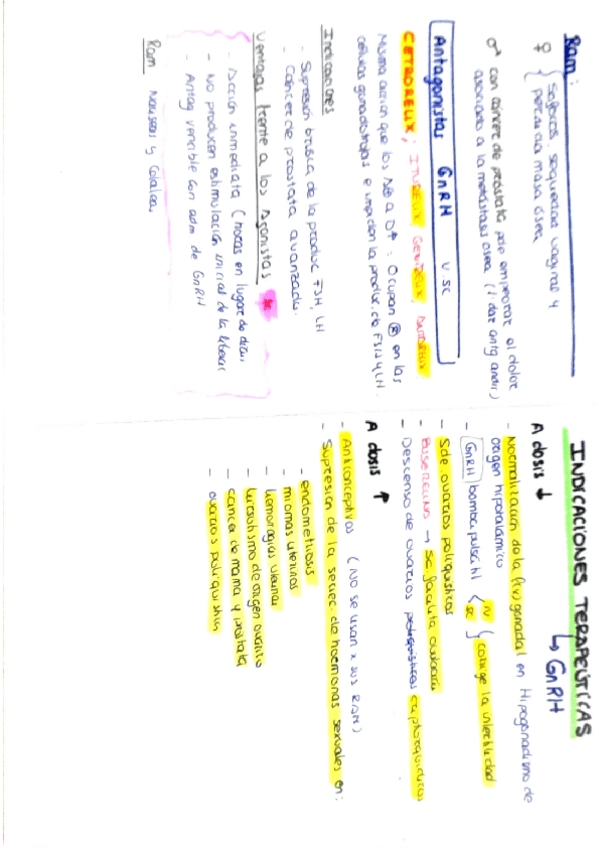 Ram:
♀ { Sofocos, sequedad vaginal y
pérdida masa ósea
♂ con cáncer de próstata pde empeorar el dolor
asociado a la metástasis ósea (↓ dar antg andr)
Antagonistas GnRH v. sc
CETRORELIX, ITURELIX, GENIRELIX,
Misma acción que los AG a D↑: Ocupan ® en las
células gonadotropas e impiden la produc. de FSH y LH.
Indicaciones
- Supresión brusca de la produc FSH, LH
- Cáncer de próstata avanzada.
Ventajas frente a los Agonistas
- Acción inmediata (horas en lugar de días)
- No producen estimulación inicial de la liberac
- Antag vencible con adm de GnRH
Ram Nauseas y Cefalea
INDICACIONES TERAPEÚTICAS
↳ GnRH
A dosis ↓
- Normalización de la fx gonadal en Hipogonadismo de
origen hipotalámico
- GnRH bomba pulsátil { IV SC } corrige la infertilidad
- Sde ovarios poliquísticos
- BUSERELINA → SC facilita ovulación
- Descenso de ovarios poliquísticos criptorquídicos
A dosis ↑
- Anticonceptivos (No se usan x sus RAM)
- Supresión de la secrec. de hormonas sexuales en:
- endometriosis
- miomas uterinos
- hemorragias uterinas
- hirsutismo de origen ovárico
- cáncer de mama y próstata
- ovarios poliquísticos